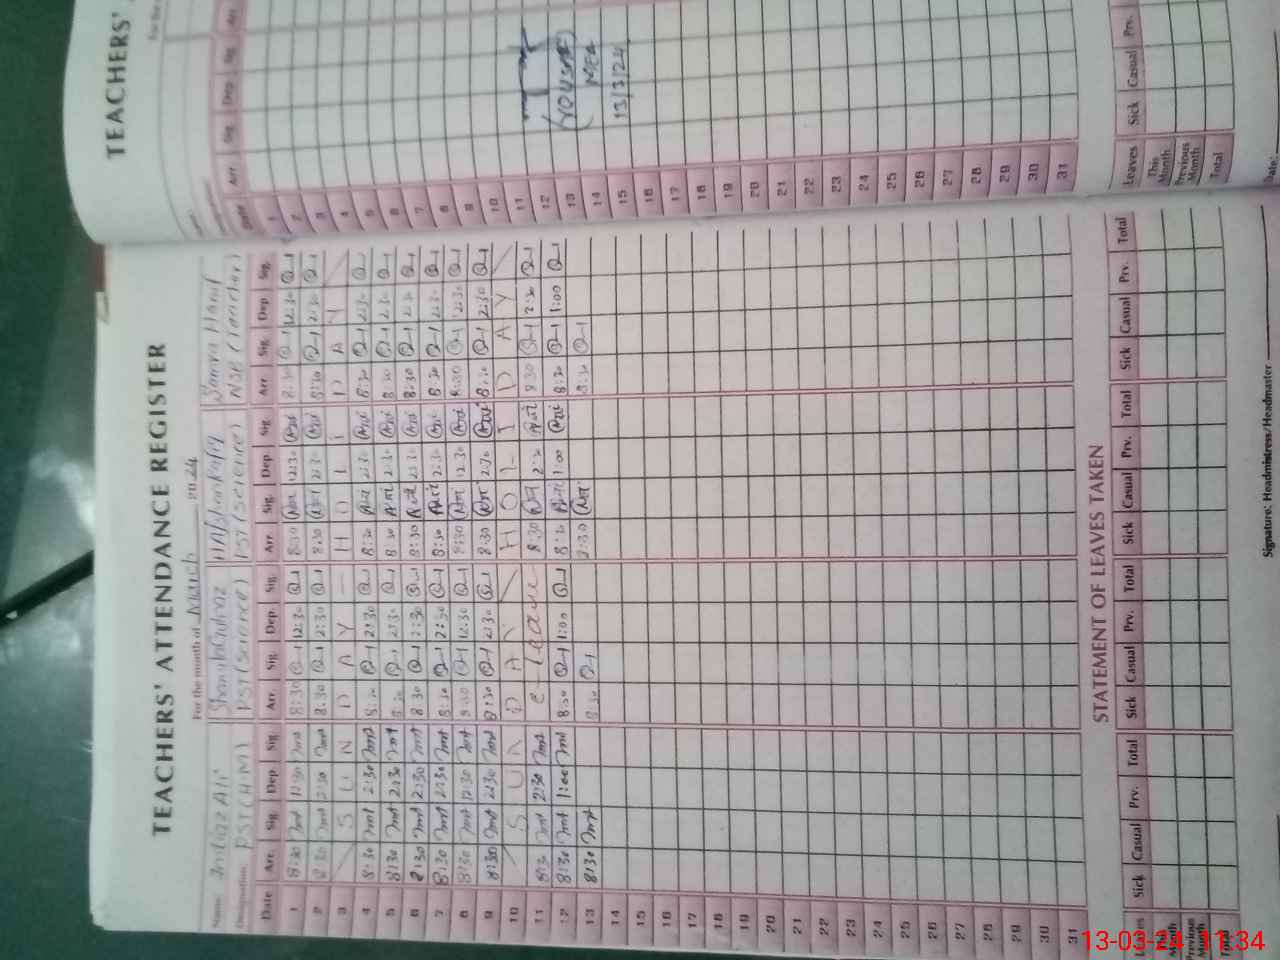 TEACHERS' ATTENDANCE REGISTER
For the month of March 2024
Name Imtiaz Ali Shoaib Gulnaz H/A/Shankafiq Samra Hanif
Designation PST (H.M) PST (Science) PST (Science) NSB (Teacher)
Date Arr. Sig. Dep. Sig. Arr. Sig. Dep. Sig. Arr. Sig. Dep. Sig. Arr. Sig. Dep. Sig.
1 8:30 12:30 8:30 12:30 8:30 12:30 8:30 12:30
2 8:30 2:30 8:30 2:30 8:30 2:30 8:30 2:30
3 S U N D A Y - H O L I D A Y
4 8:30 2:30 8:30 2:30 8:30 2:30 8:30 2:30
5 8:30 2:30 8:30 2:30 8:30 2:30 8:30 2:30
6 8:30 2:30 8:30 2:30 8:30 2:30 8:30 2:30
7 8:30 2:30 8:30 2:30 8:30 2:30 8:30 2:30
8 8:30 12:30 8:30 12:30 8:30 12:30 8:30 12:30
9 8:30 2:30 8:30 2:30 8:30 2:30 8:30 2:30
10 S U N D A Y H O L I D A Y
11 8:30 2:30 C-leave 8:30 2:30 8:30 2:30
12 8:30 1:00 8:30 1:00 8:30 1:00 8:30 1:00
13 8:30 8:30 8:30 8:30
14
15
16
17
18
19
20
21
22
23
24
25
26
27
28
29
30
31
STATEMENT OF LEAVES TAKEN
Leaves Sick Casual Prv. Total Sick Casual Prv. Total Sick Casual Prv. Total Sick Casual Prv. Total
This Month
Previous Month
Total
Signature: Headmistress/Headmaster
TEACHERS'
For the
Date Arr. Sig. Dep. Sig. Arr.
1
2
3
4
5
6
7
8
9
10
11
12
13
14
15
16
17
18
19
20
21
22
23
24
25
26
27
28
29
30
31
(YOUSAF)
MEA
13/3/24
Leaves Sick Casual Prv.
This Month
Previous Month
Total
Date:
13-03-24 11:34